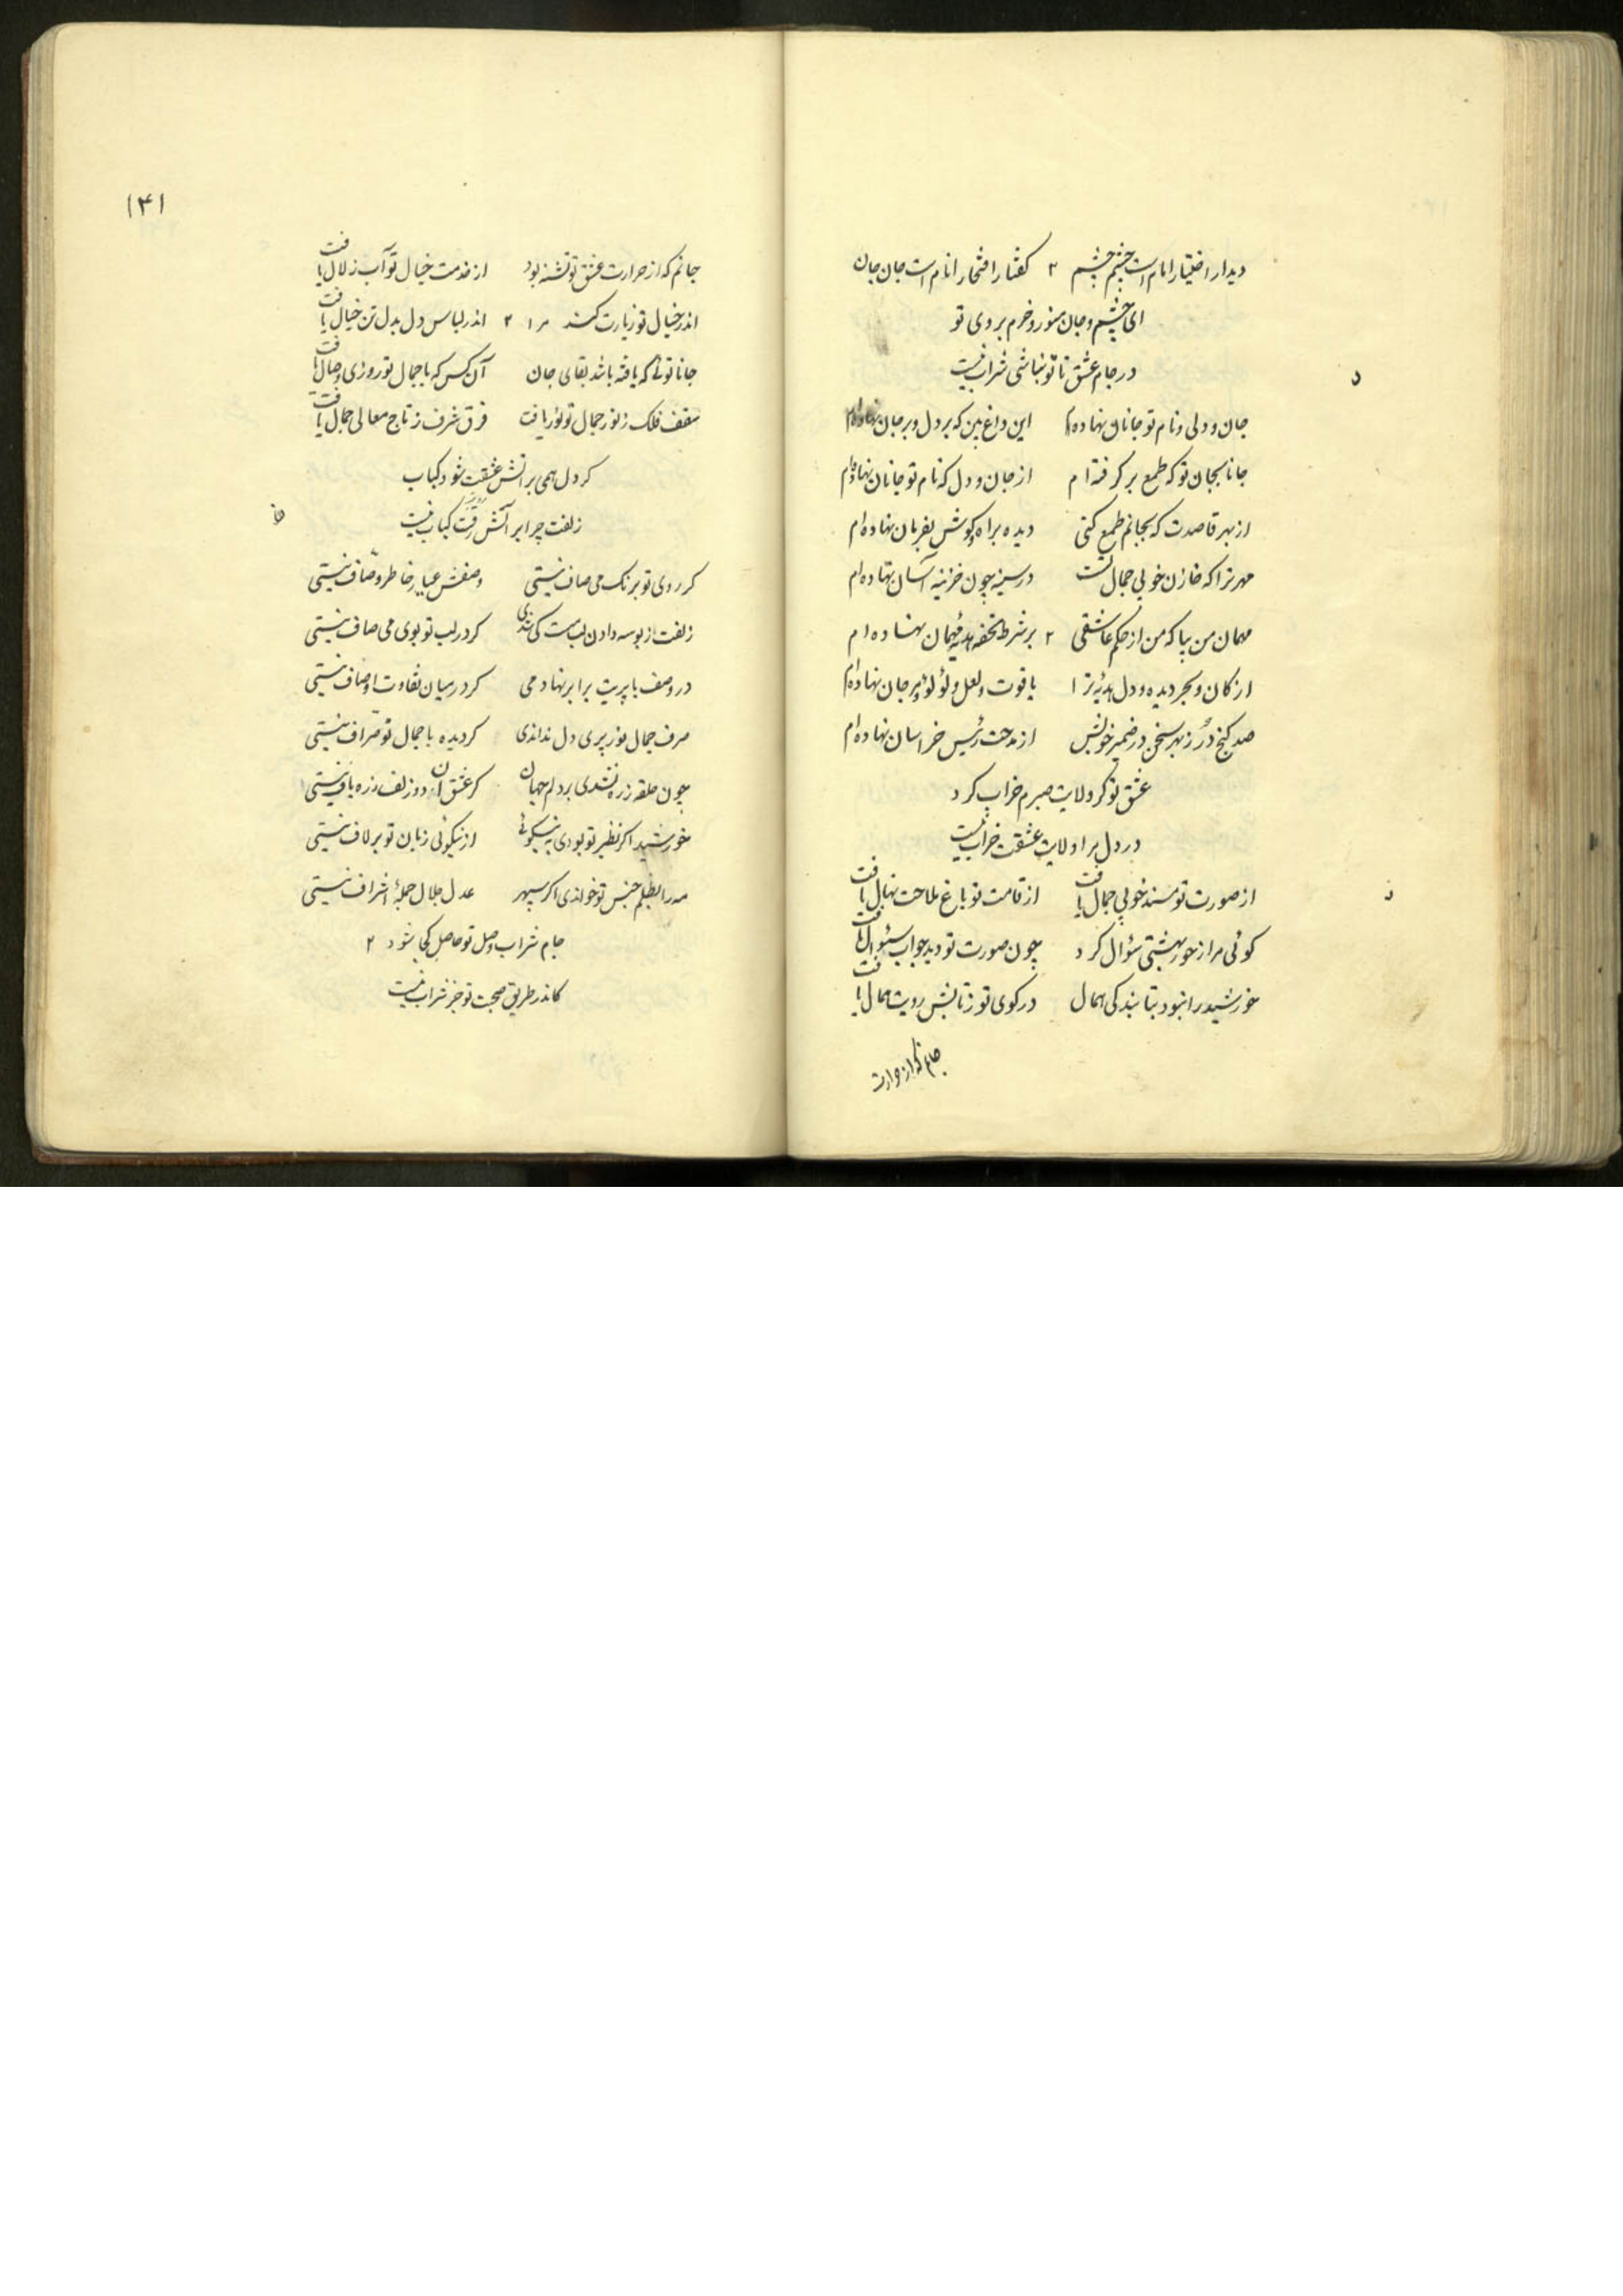 دیدار اختیار امام است چشم چشم ۲ گفتار افتخار انام است جان جان
ای چشم و جان منور و خرم بروی تو
در جام عشق تا تو نباشی شراب نیست
جان و دلی و نام تو جانان نهاده‌ام این داغ بین که بر دل و بر جان نهاده‌ام
جانا بجان تو که طمع برگرفته‌ام از جان و دل که نام تو جانان نهاده‌ام
از بهر قاصدت که بجانم طمع کنی دیده براه و گوش بفرمان نهاده‌ام
مهر ترا که خازن خوبی جمال تست در سینه چون خزینه آسان نهاده‌ام
مهمان من بیا که من از حکم عاشقی ۲ بر شرط تحفه هدیه مهمان نهاده‌ام
از کان و بحر دیده و دل هدیه ترا یاقوت و لعل و لؤلؤ و مرجان نهاده‌ام
صد گنج در ز بهر سخن در ضمیر خویش از مدحت رئیس خراسان نهاده‌ام
عشق تو گر ولایت صبرم خراب کرد
در دل مرا ولایت عشقت خراب نیست
از صورت تو مسند خوبی جمال یافت از قامت تو باغ ملاحت نهال یافت
گوئی مرا ز حور بهشتی سؤال کرد چون صورت تو دید جواب سئوال یافت
خورشید را نبود بتابندگی همال در کوی تو ز تابش رویت همال یا
جانم که از حرارت
۱۴۱
جانم که از حرارت عشق تو تشنه بود از خدمت خیال تو آب زلال یافت
اندر خیال تو زیارت کند مرا ۲ اندر لباس دل بدل تن خیال یافت
جانا توئی که یافته باشد بقای جان آن کس که با جمال تو روزی وصال یافت
سقف فلک ز نور جمال تو نور یافت فرق شرف ز تاج معالی جمال یافت
گر دل همی بر آتش عشقت شود کباب
زلفت چرا بر آتش رویت کباب نیست
گر روی تو برنگ می صاف نیستی وصفش عیار خاطر وصاف نیستی
زلفت از بوسه دادن لب مست کی شدی گر در لب تو بوی می صاف نیستی
در وصف با پریت برابر نهادمی گر در میان تفاوت اوصاف نیستی
صرف جمال نور پری دل نداندی گر دیده با جمال تو صراف نیستی
چون حلقه زره نشدی بر دلم جهان گر عشق آن دو زلف زره باف نیستی
خورشید اگر نظیر تو بودی به نیکوئی از نیکوئی زبان تو بر لاف نیستی
مه را بظلم جنس تو خواندی اگر سپهر عدل جلال جملهٔ اشراف نیستی
جام شراب وصل تو حاصل کجا شود ۲
کاندر طریق صحبت تو جز شراب نیست